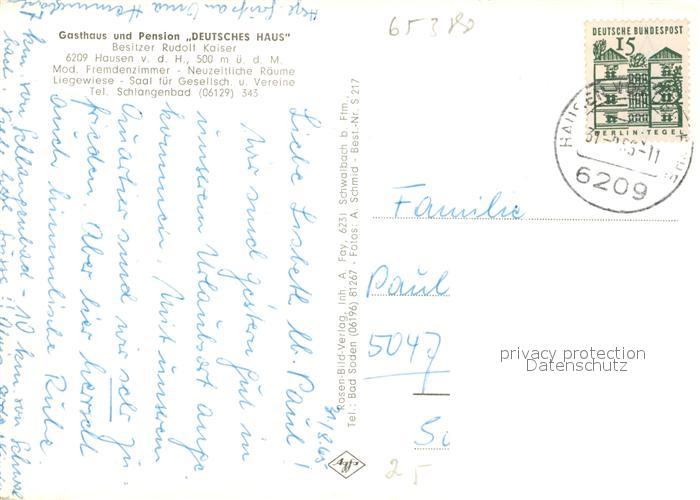 Gasthaus und Pension „DEUTSCHES HAUS"
Besitzer Rudolf Kaiser
6209 Hausen v. d. H., 500 m ü. d. M.
Mod. Fremdenzimmer - Neuzeitliche Räume
Liegewiese - Saal für Gesellsch. u. Vereine
Tel. Schlangenbad (06129) 343
65380
DEUTSCHE BUNDESPOST
15
BERLIN-TEGEL
HAUSEN
6209
Rosen-Bild-Verlag, Inh. A. Fay, 6231 Schwalbach b. Ffm.,
Tel.: Bad Soden (06196) 81267 - Fotos: A. Schmid - Best.-Nr. S 217
31/8.65
Liebe Lisbeth lb. Paul!
Wir sind gestern gut in
unserem Urlaubsort ange
kommen. Mit unserem
Quartier sind wir sehr zu
frieden. Aber hier herrscht
auch himmlische Ruhe
km von Schlangenbad - 10 km von
Familie
Paul
5047
privacy protection
Datenschutz
25